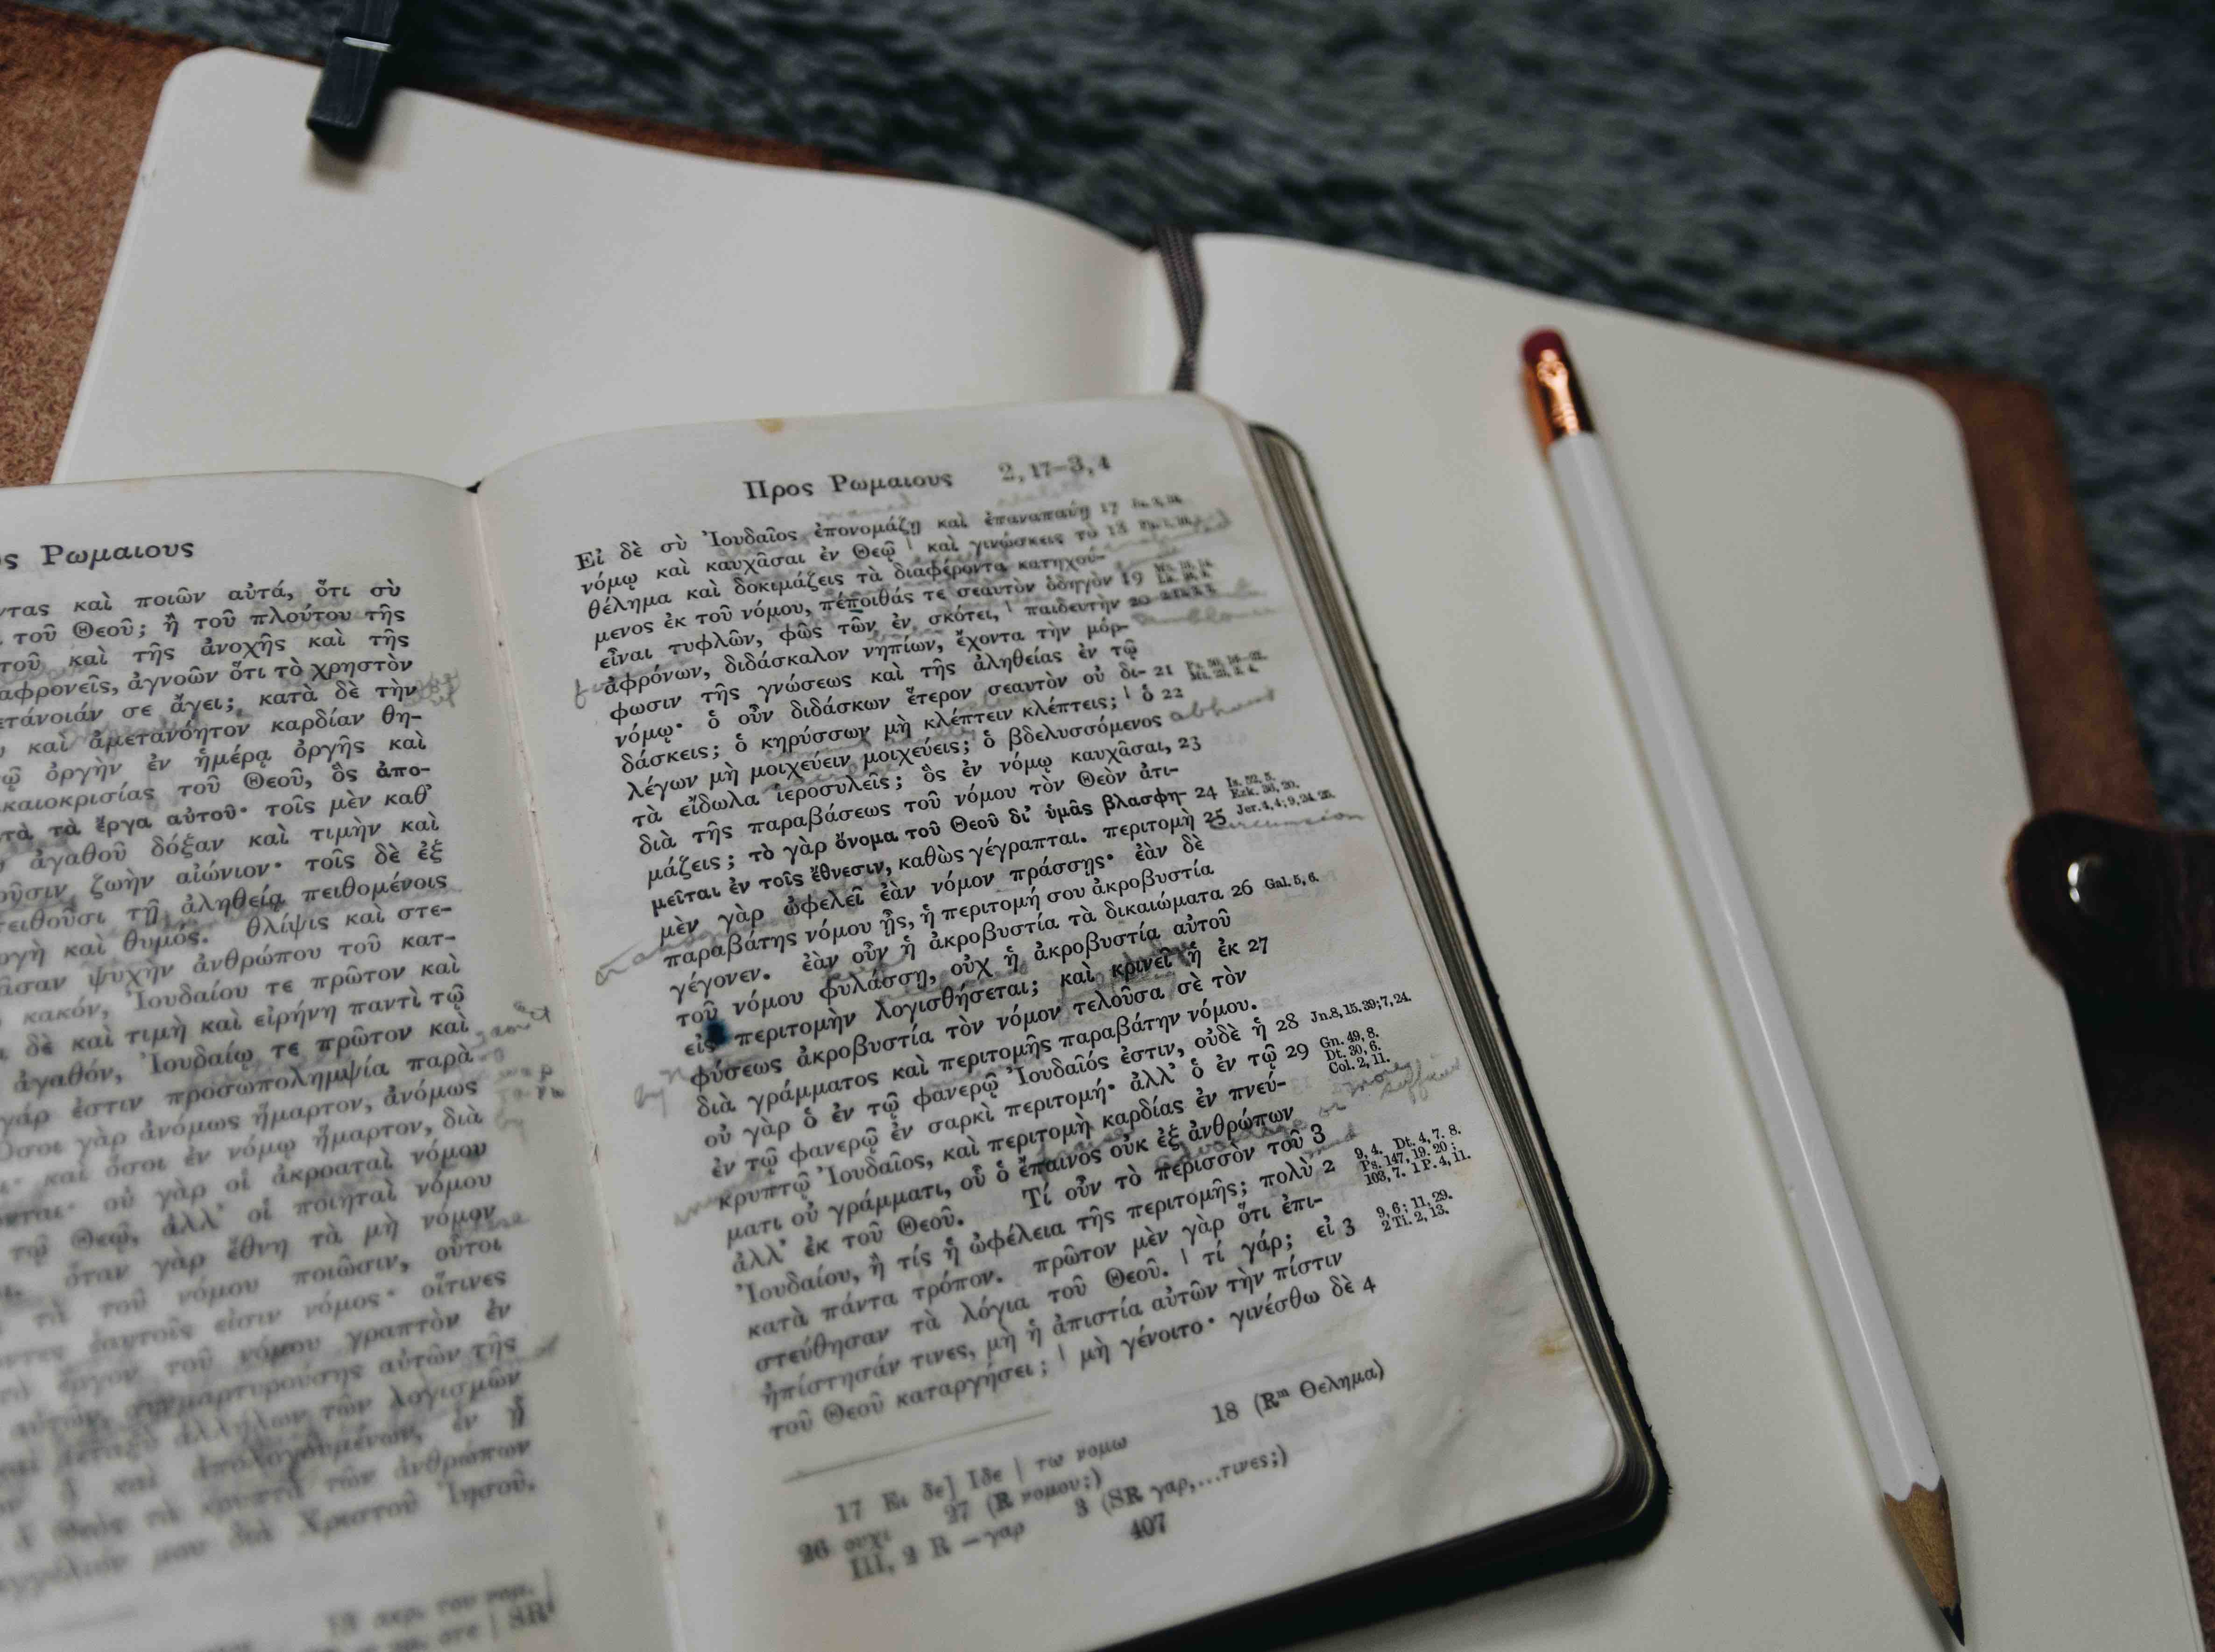 ς Ρωμαιους
ντας καὶ ποιῶν αὐτά, ὅτι σὺ
τοῦ Θεοῦ; ἢ τοῦ πλούτου τῆς
τοῦ καὶ τῆς ἀνοχῆς καὶ τῆς
αφρονεῖς, ἀγνοῶν ὅτι τὸ χρηστὸν
ετάνοιάν σε ἄγει; κατὰ δὲ τὴν
καὶ ἀμετανόητον καρδίαν θη-
ὀργὴν ἐν ἡμέρᾳ ὀργῆς καὶ
καιοκρισίας τοῦ Θεοῦ, ὃς ἀπο-
τὰ τὰ ἔργα αὐτοῦ· τοῖς μὲν καθ’
ἀγαθοῦ δόξαν καὶ τιμὴν καὶ
οῦσιν ζωὴν αἰώνιον· τοῖς δὲ ἐξ
πειθοῦσι τῇ ἀληθείᾳ πειθομένοις
ργὴ καὶ θυμός. θλίψις καὶ στε-
ᾶσαν ψυχὴν ἀνθρώπου τοῦ κατ-
κακόν, Ἰουδαίου τε πρῶτον καὶ
δὲ καὶ τιμὴ καὶ εἰρήνη παντὶ τῷ
ἀγαθόν, Ἰουδαίῳ τε πρῶτον καὶ
γάρ ἐστιν προσωπολημψία παρὰ
Ὅσοι γὰρ ἀνόμως ἥμαρτον, ἀνόμως
καὶ ὅσοι ἐν νόμῳ ἥμαρτον, διὰ
νται· οὐ γὰρ οἱ ἀκροαταὶ νόμου
τῷ Θεῷ, ἀλλ’ οἱ ποιηταὶ νόμου
ὅταν γὰρ ἔθνη τὰ μὴ νόμον
τὰ τοῦ νόμου ποιῶσιν, οὗτοι
ντες ἑαυτοῖς εἰσιν νόμος· οἵτινες
τὸ ἔργον τοῦ νόμου γραπτὸν ἐν
αὐτῶν, συνμαρτυρούσης αὐτῶν τῆς
καὶ μεταξὺ ἀλλήλων τῶν λογισμῶν
ἢ καὶ ἀπολογουμένων, ἐν ᾗ
ὁ Θεὸς τὰ κρυπτὰ τῶν ἀνθρώπων
αγγέλιόν μου διὰ Χριστοῦ Ἰησοῦ.
Προς Ρωμαιους 2, 17–3, 4
Εἰ δὲ σὺ Ἰουδαῖος ἐπονομάζῃ καὶ ἐπαναπαύῃ 17
νόμῳ καὶ καυχᾶσαι ἐν Θεῷ | καὶ γινώσκεις τὸ 18
θέλημα καὶ δοκιμάζεις τὰ διαφέροντα κατηχού-
μενος ἐκ τοῦ νόμου, πέποιθάς τε σεαυτὸν ὁδηγὸν 19
εἶναι τυφλῶν, φῶς τῶν ἐν σκότει, | παιδευτὴν 20
ἀφρόνων, διδάσκαλον νηπίων, ἔχοντα τὴν μόρ-
φωσιν τῆς γνώσεως καὶ τῆς ἀληθείας ἐν τῷ
νόμῳ· ὁ οὖν διδάσκων ἕτερον σεαυτὸν οὐ δι- 21
δάσκεις; ὁ κηρύσσων μὴ κλέπτειν κλέπτεις; | ὁ 22
λέγων μὴ μοιχεύειν μοιχεύεις; ὁ βδελυσσόμενος
τὰ εἴδωλα ἱεροσυλεῖς; ὃς ἐν νόμῳ καυχᾶσαι, 23
διὰ τῆς παραβάσεως τοῦ νόμου τὸν Θεὸν ἀτι-
μάζεις; τὸ γὰρ ὄνομα τοῦ Θεοῦ δι’ ὑμᾶς βλασφη- 24 Is. 52, 5. Ezk. 36, 20.
μεῖται ἐν τοῖς ἔθνεσιν, καθὼς γέγραπται. περιτομὴ 25 Jer. 4, 4; 9, 24. 25.
μὲν γὰρ ὠφελεῖ ἐὰν νόμον πράσσῃς· ἐὰν δὲ
παραβάτης νόμου ᾖς, ἡ περιτομή σου ἀκροβυστία
γέγονεν. ἐὰν οὖν ἡ ἀκροβυστία τὰ δικαιώματα 26 Gal. 5, 6.
τοῦ νόμου φυλάσσῃ, οὐχ ἡ ἀκροβυστία αὐτοῦ
εἰς περιτομὴν λογισθήσεται; καὶ κρινεῖ ἡ ἐκ 27
φύσεως ἀκροβυστία τὸν νόμον τελοῦσα σὲ τὸν
διὰ γράμματος καὶ περιτομῆς παραβάτην νόμου.
οὐ γὰρ ὁ ἐν τῷ φανερῷ Ἰουδαῖός ἐστιν, οὐδὲ ἡ 28 Jn. 8, 15. 39; 7, 24.
ἐν τῷ φανερῷ ἐν σαρκὶ περιτομή· ἀλλ’ ὁ ἐν τῷ 29 Gn. 49, 8. Dt. 30, 6. Col. 2, 11.
κρυπτῷ Ἰουδαῖος, καὶ περιτομὴ καρδίας ἐν πνεύ-
ματι οὐ γράμματι, οὗ ὁ ἔπαινος οὐκ ἐξ ἀνθρώπων
ἀλλ’ ἐκ τοῦ Θεοῦ. Τί οὖν τὸ περισσὸν τοῦ 3
Ἰουδαίου, ἢ τίς ἡ ὠφέλεια τῆς περιτομῆς; πολὺ 2 9, 4. Dt. 4, 7. 8. Ps. 147, 19. 20; 103, 7. 1 P. 4, 11.
κατὰ πάντα τρόπον. πρῶτον μὲν γὰρ ὅτι ἐπι-
στεύθησαν τὰ λόγια τοῦ Θεοῦ. | τί γάρ; εἰ 3 9, 6; 11, 29. 2 Ti. 2, 13.
ἠπίστησάν τινες, μὴ ἡ ἀπιστία αὐτῶν τὴν πίστιν
τοῦ Θεοῦ καταργήσει; | μὴ γένοιτο· γινέσθω δὲ 4
17 Ει δε] Ιδε | τω νομω 18 (Rᵐ Θελημα)
26 ουχι 27 (R νομου;)
III, 2 R –γαρ 3 (SR γαρ,...τινες;)
407